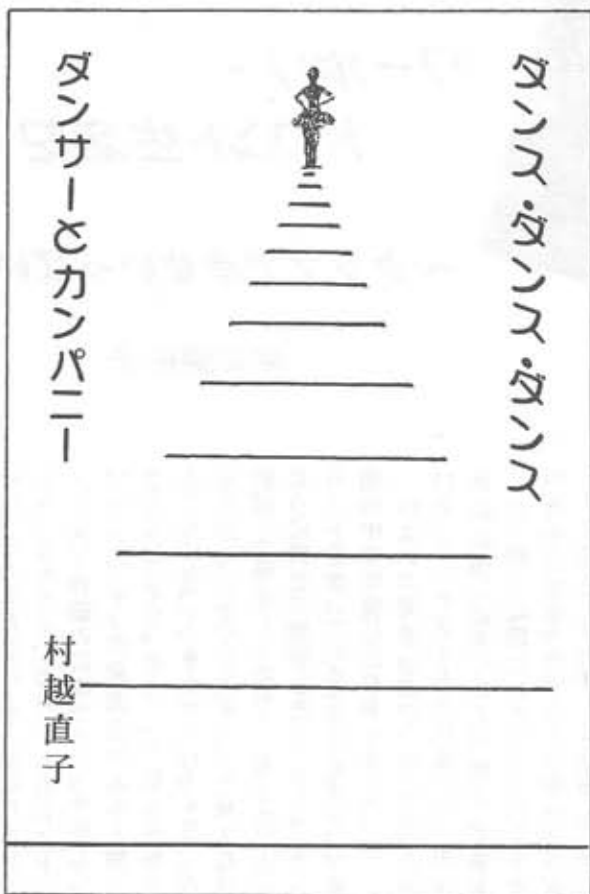 ダンス・ダンス・ダンス
ダンサーとカンパニー
村越直子